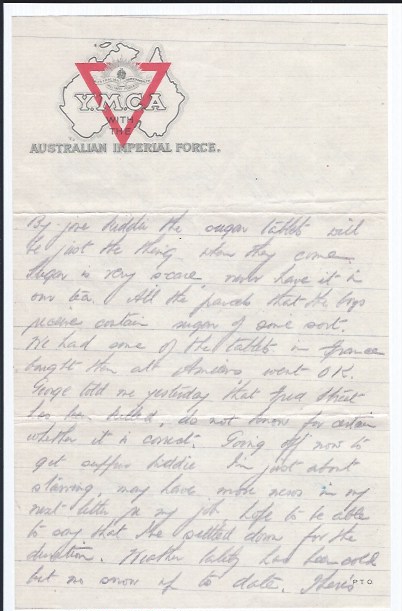 Y.M.C.A
WITH
THE
AUSTRALIAN IMPERIAL FORCE.
By jove kiddie the sugar tablets will
be just the thing when they come.
Sugar is very scarce never have it in
our tea. All the parcels that the boys
receive contain sugar of some sort.
We had some of the tablets in France
bought them at Amiens went O.K.
George told me yesterday that Fred Street
has been killed, do not know for certain
whether it is correct. Going off now to
get supper kiddie I'm just about
starving, may have more news in my
next letter re my job. Hope to be able
to say that I've settled down for the
duration. Weather lately has been cold
but no snow up to date. There's
P.T.O